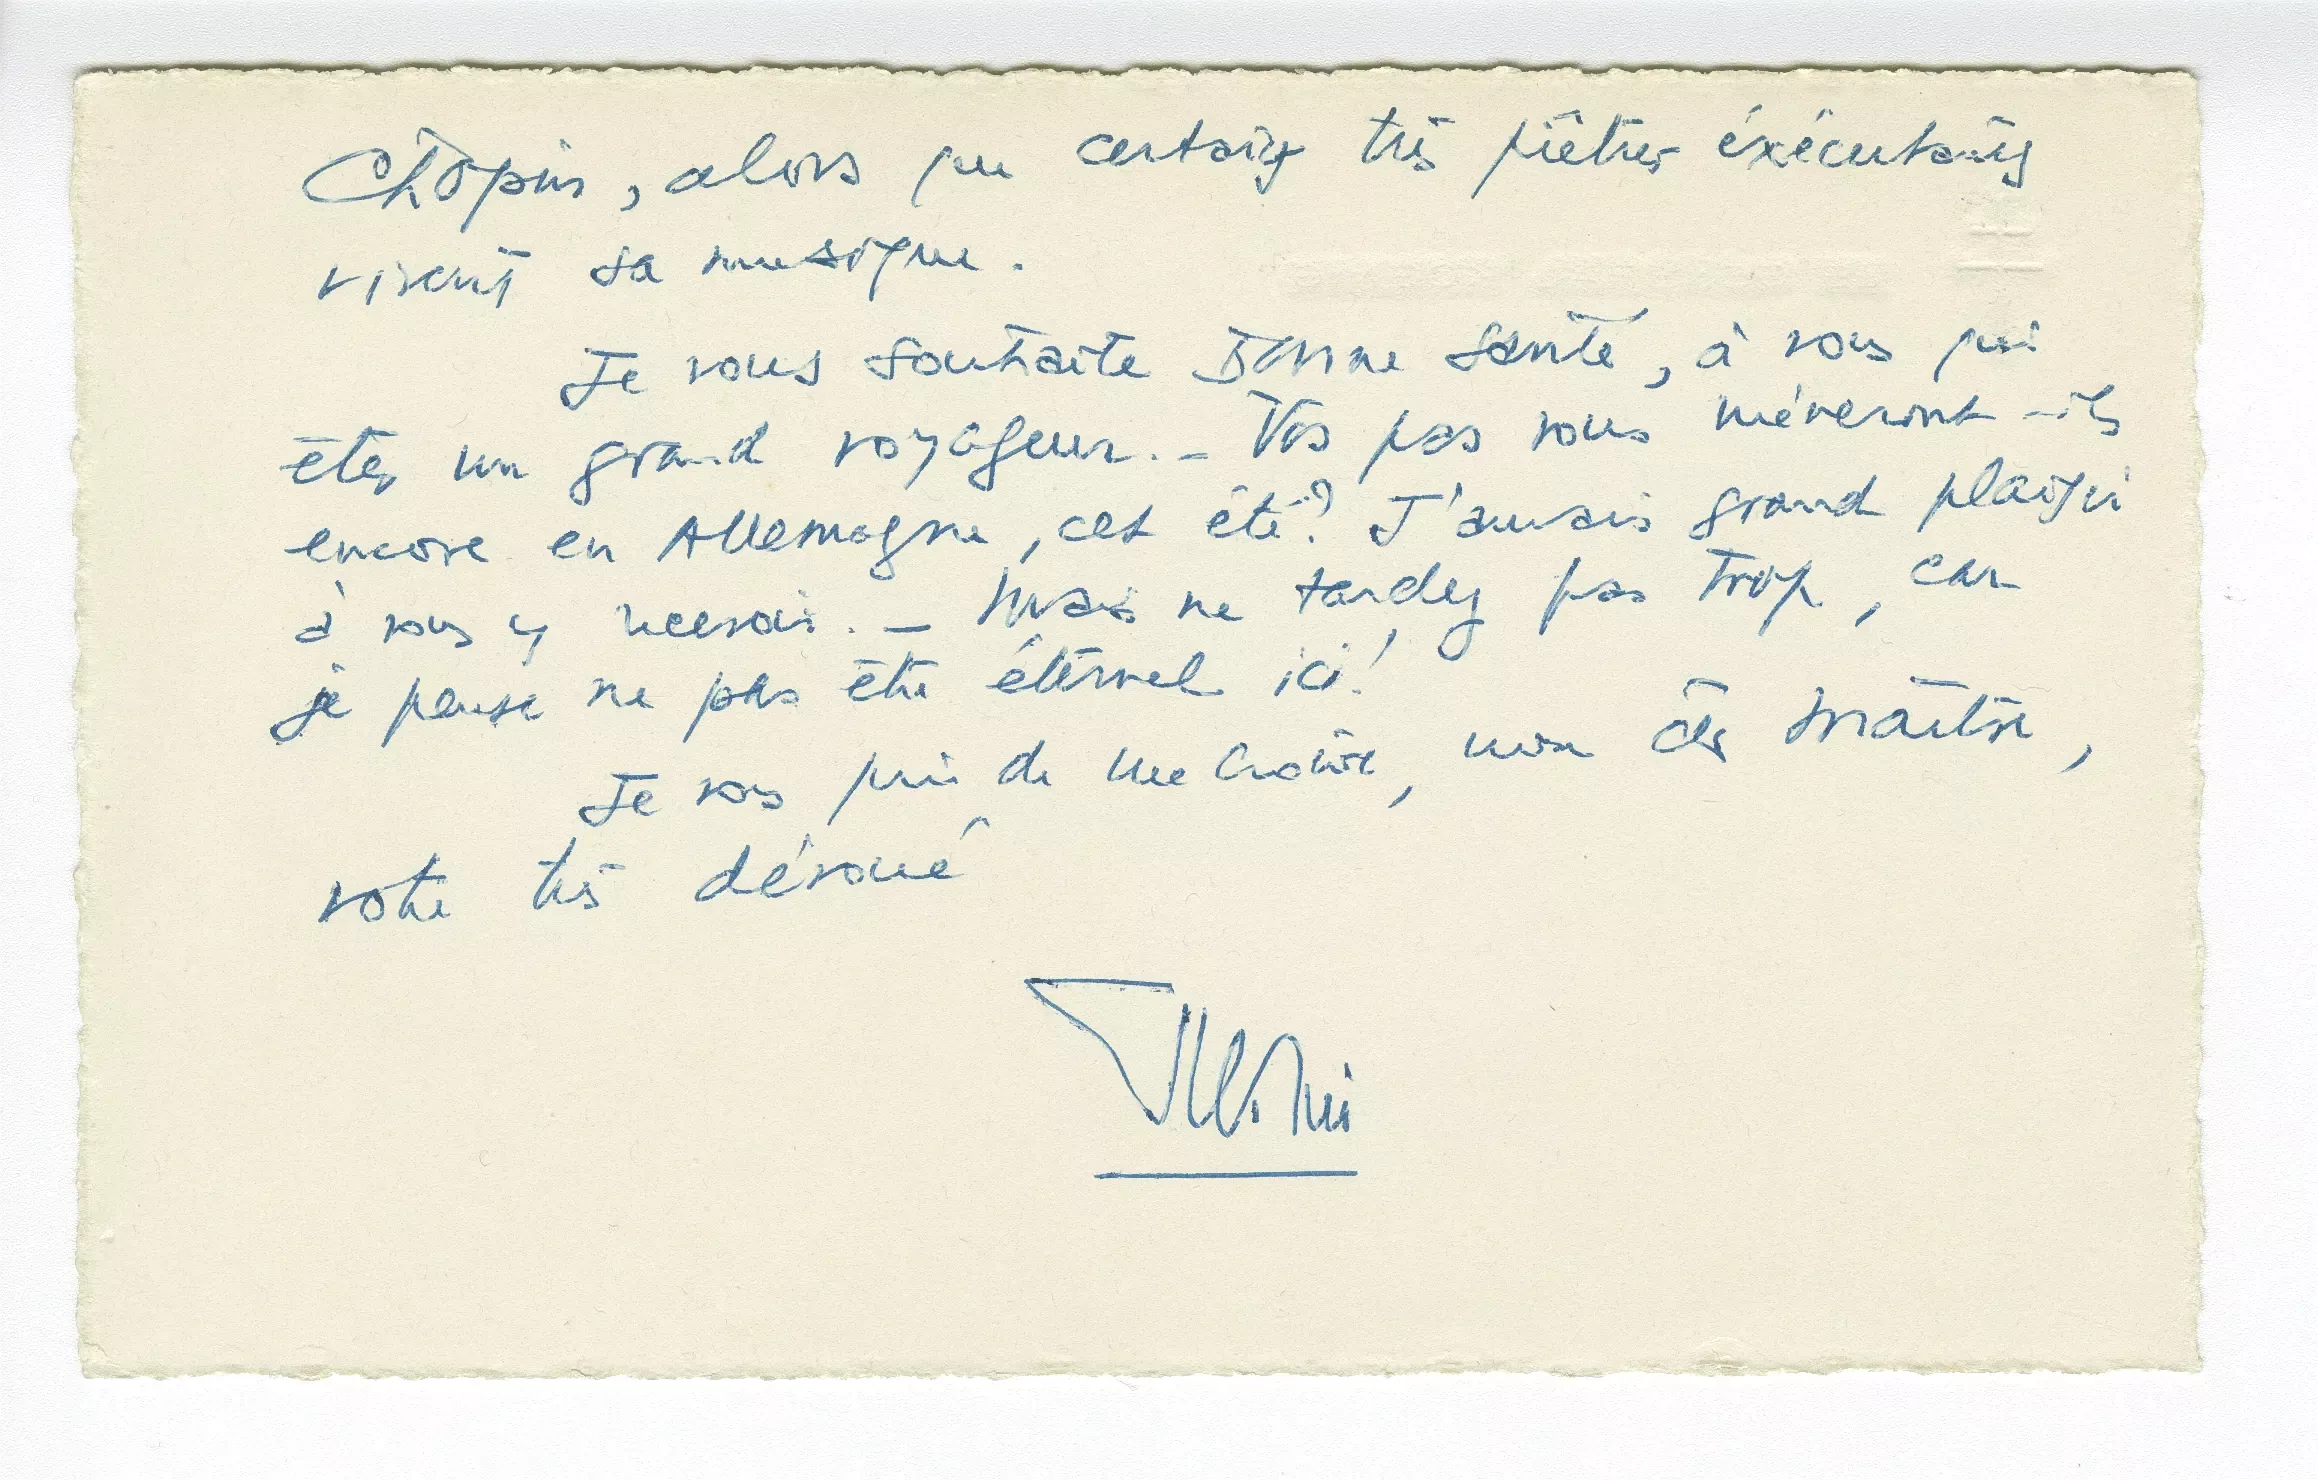 Chopin, alors que certains très piètres éxécutants
visent sa musique.
Je vous souhaite bonne santé, à vous qui
êtes un grand voyageur. _ Vos pas vous mèneront-ils
encore en Allemagne, cet été ? J'aurais grand plaisir
à vous y recevoir. _ Mais ne tardez pas trop, car
je pense ne pas être éternel ici !
Je vous prie de me croire, mon cher Maître,
votre très dévoué